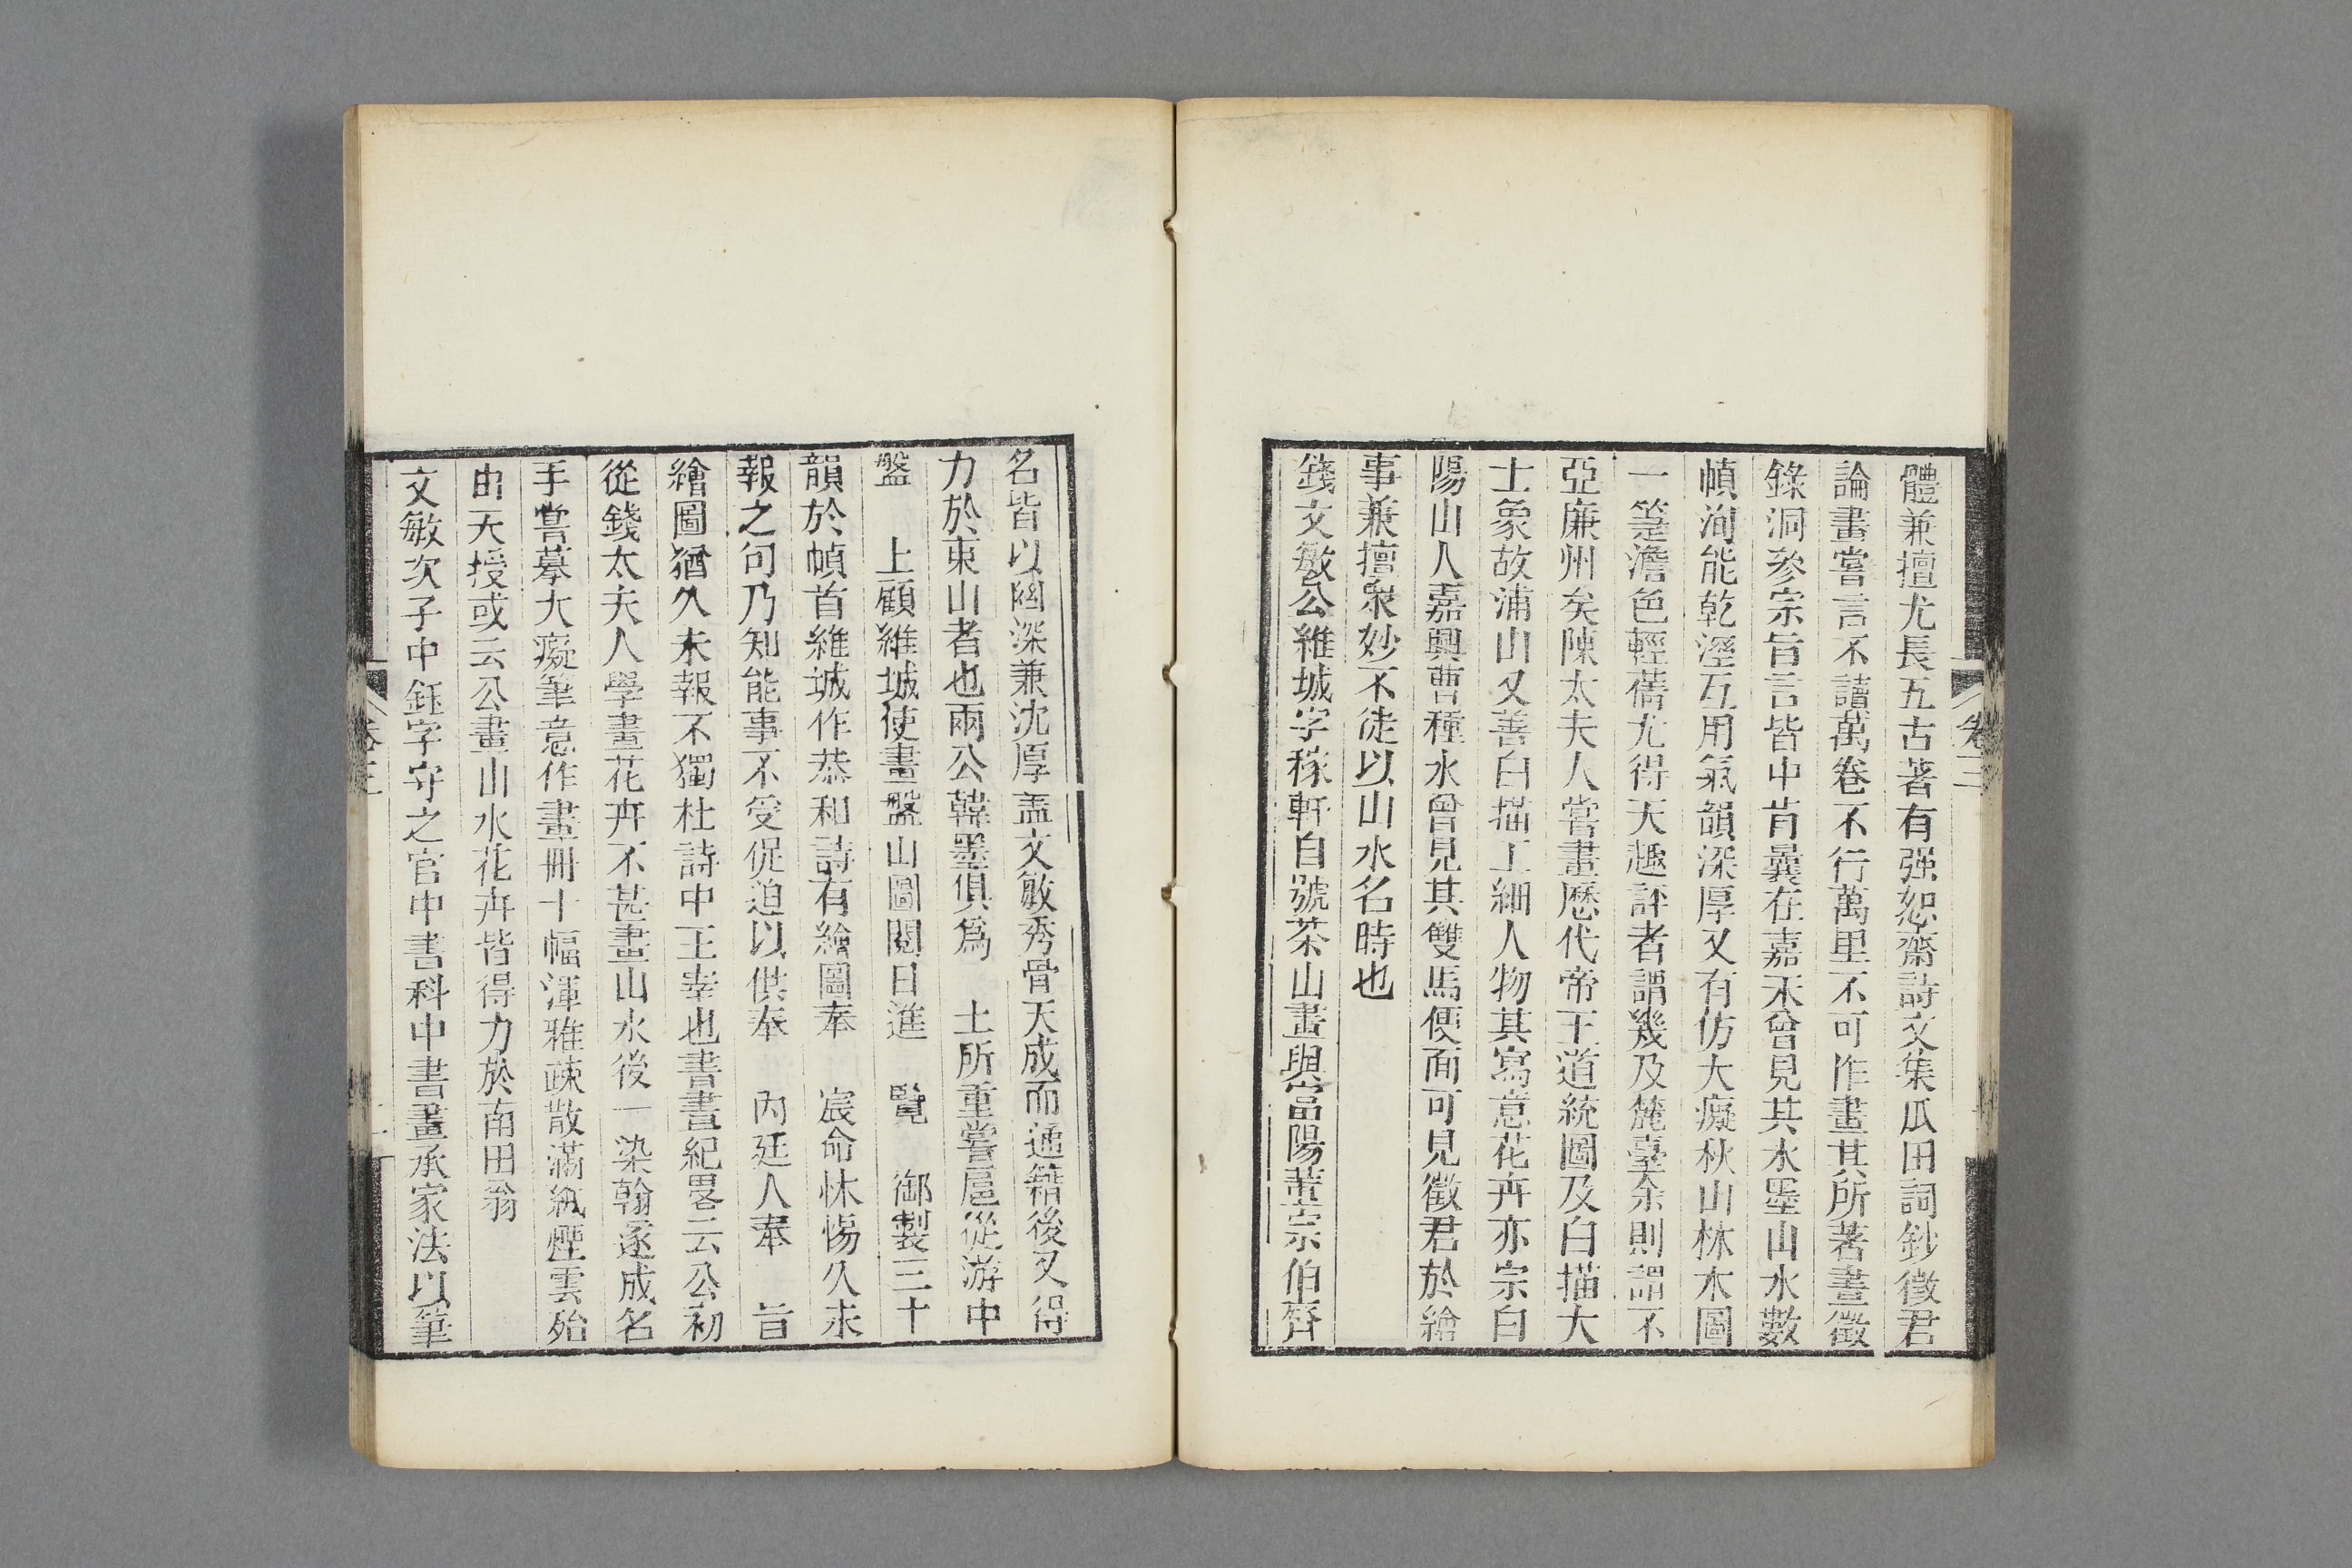 體兼擅尤長五古著有强恕齋詩文集瓜田詞鈔徵君
論畫嘗言不讀萬卷不行萬里不可作畫其所著畫徵
錄洞參宗旨言皆中肯曩在嘉禾曾見其水墨山水數
幀洵能乾溼互用氣韻深厚又有仿大癡秋山林木圖
一箑澹色輕蒨尤得天趣評者謂幾及麓臺余則謂不
亞廉州矣陳太夫人嘗畫歷代帝王道統圖及白描大
士象故浦山又善白描工細人物其寫意花卉亦宗白
陽山人嘉興曹種水曾見其雙馬便面可見徵君於繪
事兼擅衆妙不徒以山水名時也
錢文敏公維城字稼軒自號茶山畫與富陽董宗伯齊
卷三
名皆以幽深兼沈厚盖文敏秀骨天成而通籍後又得
力於東山者也兩公翰墨俱爲　上所重嘗扈從游中
盤　上顧維城使畫盤山圖閱日進　覽　御製三十
韻於幀首維城作恭和詩有繪圖奉　宸命怵惕久未
報之句乃知能事不受促迫以供奉　內廷人奉　旨
繪圖猶久未報不獨杜詩中王宰也書畫紀畧云公初
從錢太夫人學畫花卉不甚畫山水後一染翰遂成名
手嘗摹大癡筆意作畫冊十幅渾雅疎散滿紙煙雲殆
由天授或云公畫山水花卉皆得力於南田翁
文敏次子中鈺字守之官中書科中書畫承家法以筆
卷三